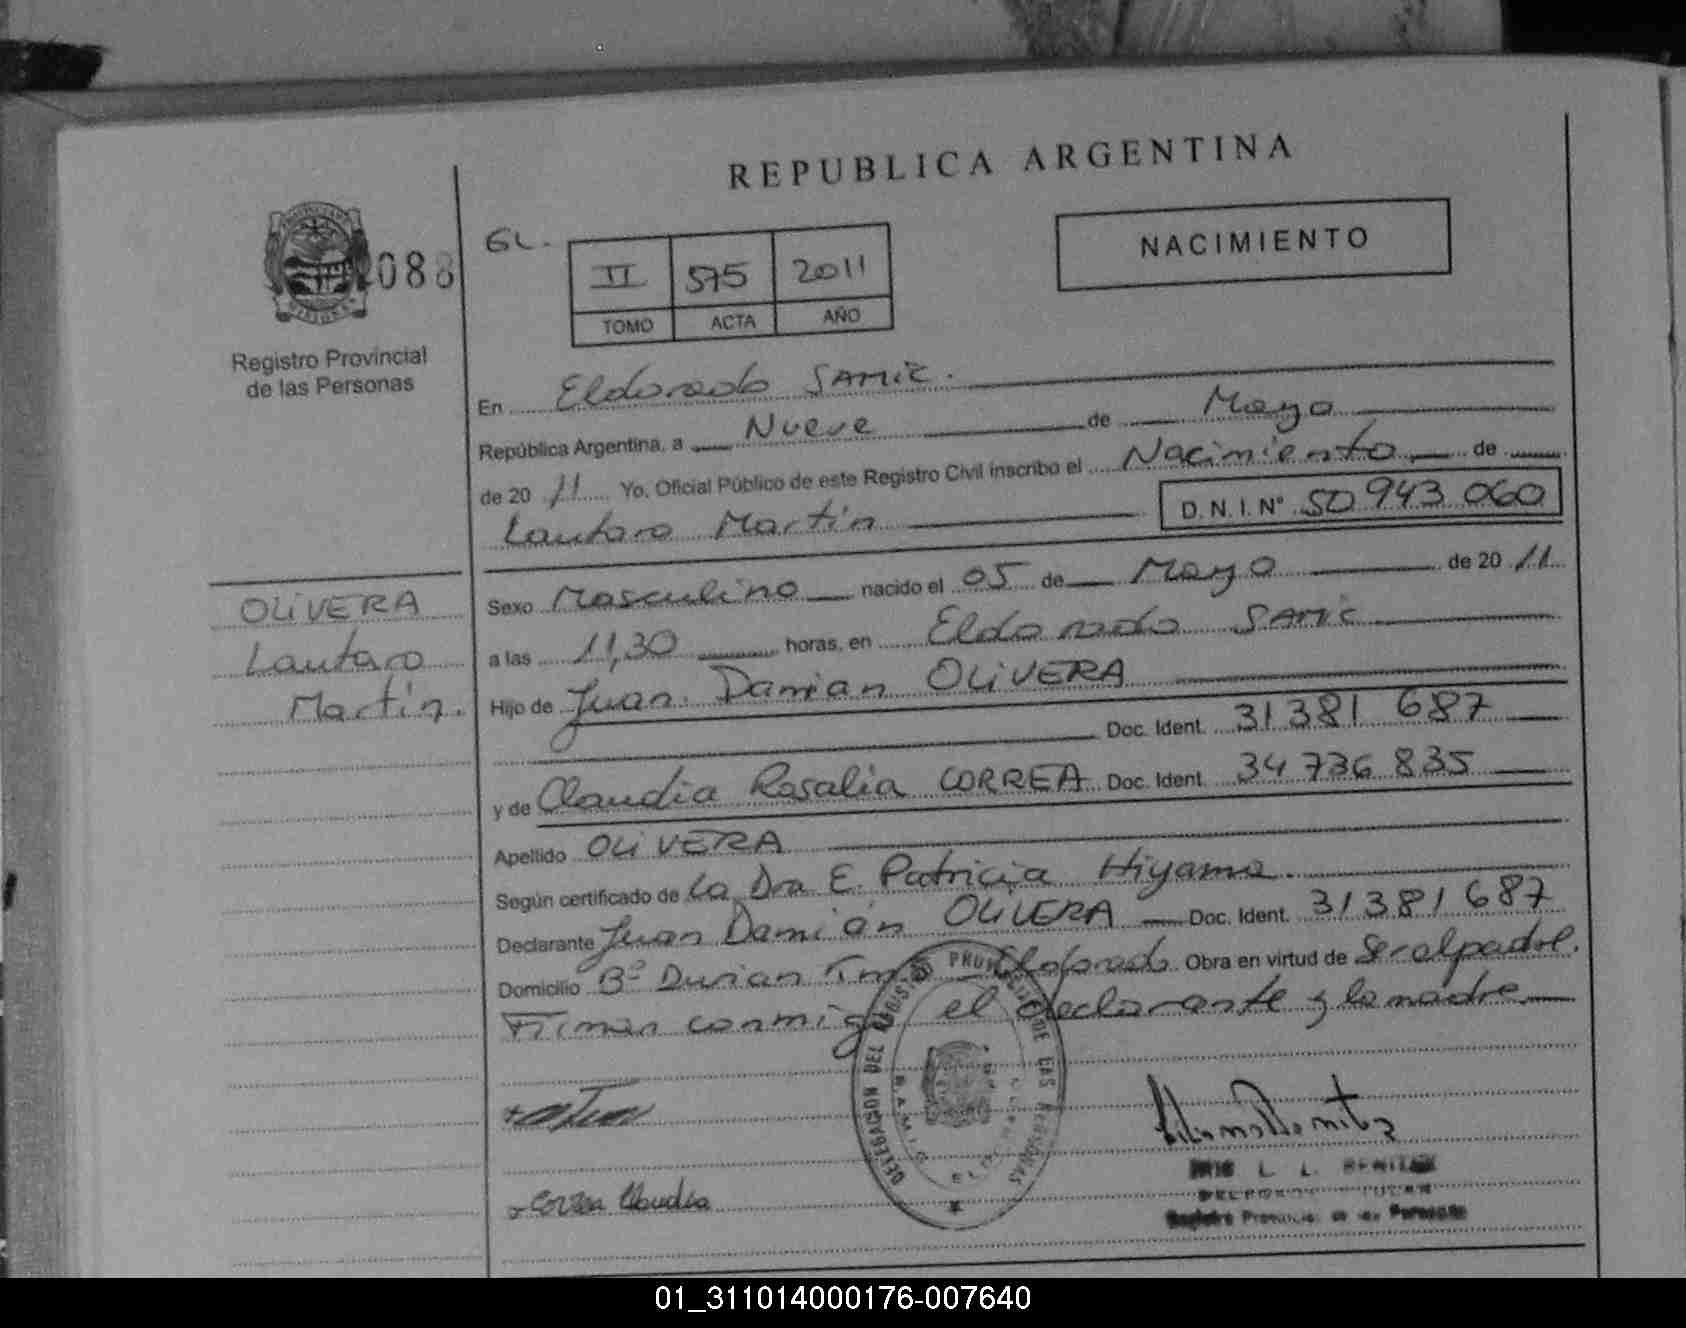 REPUBLICA ARGENTINA
NACIMIENTO
088
GL.
II 575 2011
TOMO ACTA AÑO
Registro Provincial
de las Personas
OLIVERA
Lautaro
Martín.
En Eldorado SAMIC.
República Argentina, a Nueve de Mayo
de 20 11 Yo, Oficial Público de este Registro Civil inscribo el Nacimiento de
Lautaro Martín D.N.I. N° 50 943 060
Sexo Masculino nacido el 05 de Mayo de 20 11
a las 11,30 horas, en Eldorado SAMIC
Hijo de Juan Damian OLIVERA
Doc. Ident. 31 381 687
y de Claudia Rosalia CORREA Doc. Ident. 34 736 835
Apellido OLIVERA
Según certificado de La Dra E. Patricia Hiyama
Declarante Juan Damián OLIVERA Doc. Ident. 31 381 687
Domicilio Bº Eldorado Obra en virtud de Ser el padre.
Firman conmigo el declarante y la madre
DELEGACION DEL REGISTRO PROVINCIAL DE LAS PERSONAS
Correa Claudia
Registro Provincial de las Personas
01_311014000176-007640